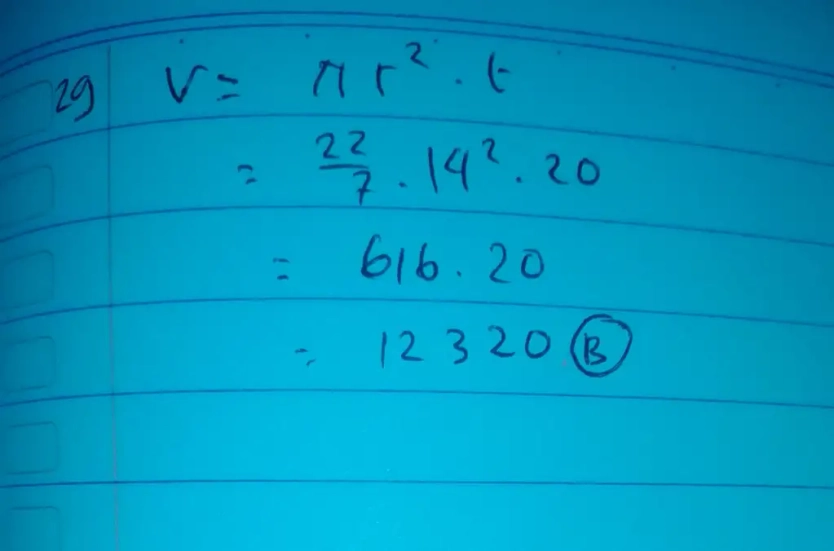 29 V = π r² . t
= 22/7 . 14² . 20
= 616 . 20
= 12320 B